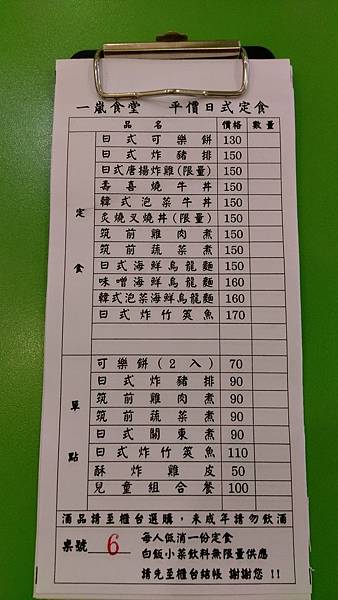 一嵐食堂 平價日式定食
品名 價格 數量
定食
日式可樂餅 130
日式炸豬排 150
日式唐揚炸雞(限量) 150
壽喜燒牛丼 150
韓式泡菜牛丼 150
炙燒叉燒丼(限量) 150
筑前雞肉煮 150
筑前蔬菜煮 150
日式海鮮烏龍麵 150
味噌海鮮烏龍麵 160
韓式泡菜海鮮烏龍麵 160
日式炸竹筴魚 170
單點
可樂餅(2入) 70
日式炸豬排 90
筑前雞肉煮 90
筑前蔬菜煮 90
日式關東煮 90
日式炸竹筴魚 110
酥炸雞皮 50
兒童組合餐 100
酒品請至櫃台選購，未成年請勿飲酒
桌號 6
每人低消一份定食
白飯小菜飲料無限量供應
請先至櫃台結帳 謝謝您 !!